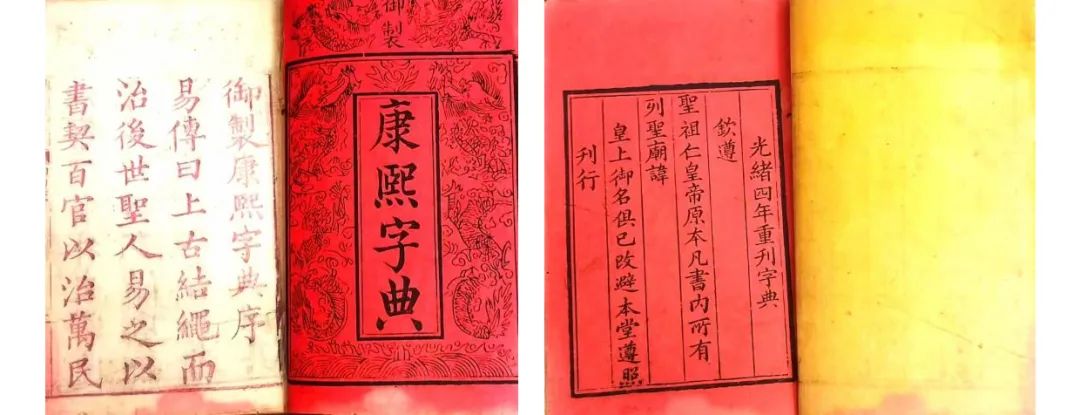 御製
康熙字典
御製康熙字典序
易傳曰上古結繩而
治後世聖人易之以
書契百官以治萬民
光緒四年重刊字典
欽遵
聖祖仁皇帝原本凡書内所有
列聖廟諱
皇上御名俱已改避本堂遵照
刊行